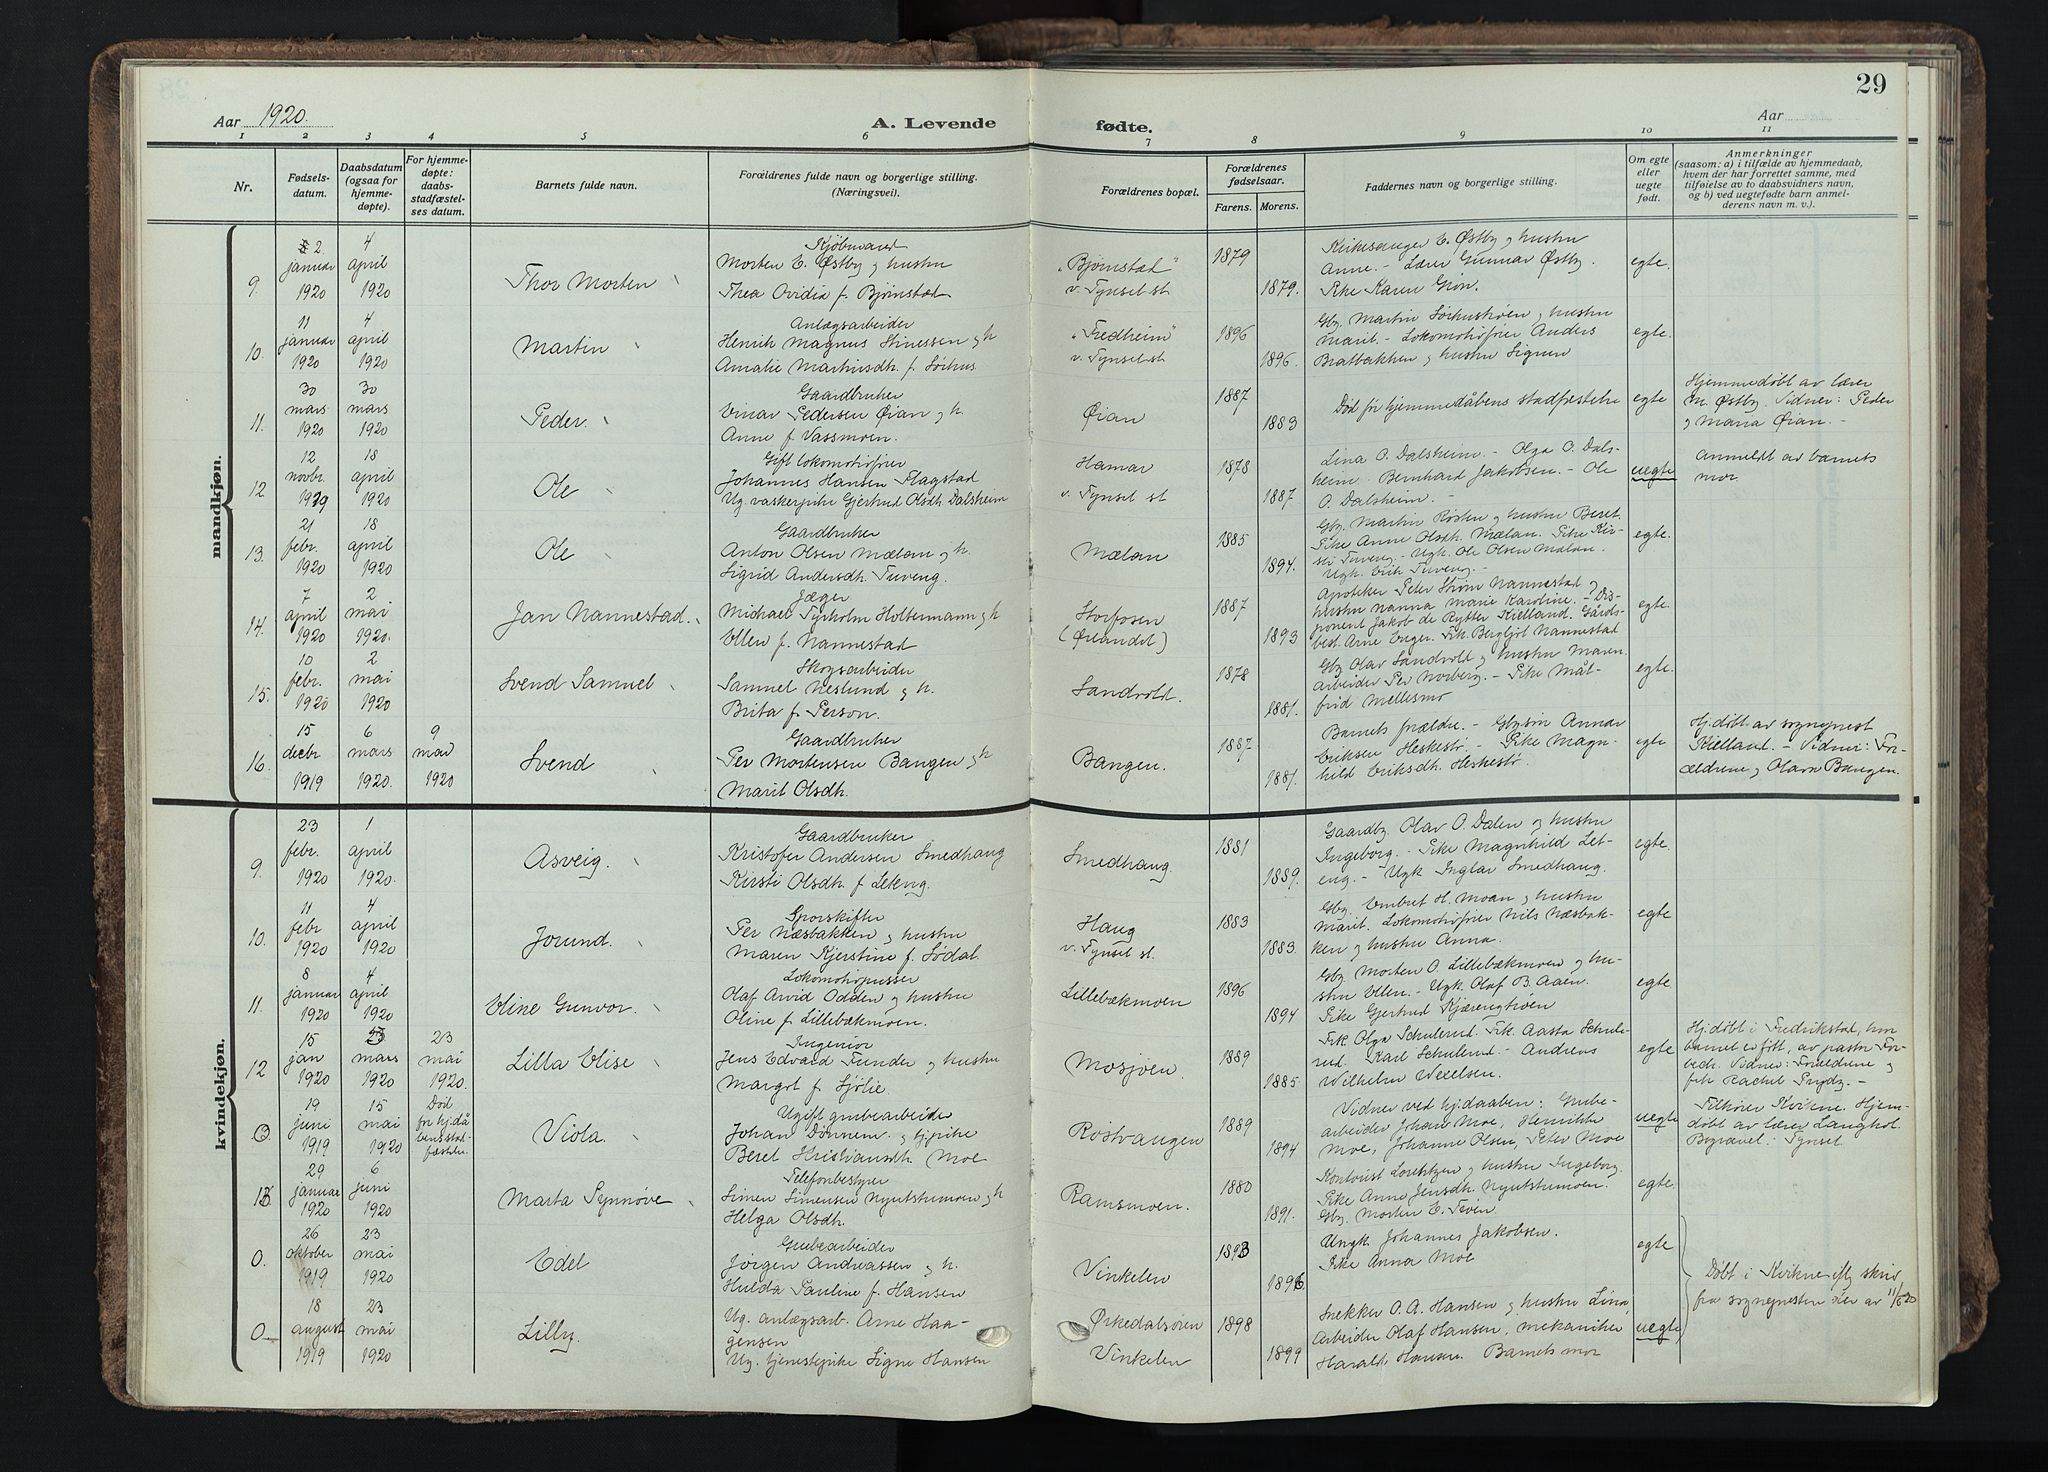 29
Aar 1920.
A. Levende
fødte.
Aar
1 2 3 4 5 6 7 8 9 10 11
Nr.
Fødsels-
datum.
Daabsdatum
(ogsaa for
hjemme-
døpte).
For hjemme-
døpte:
daabs-
stadfæstel-
ses datum.
Barnets fulde navn.
Forældrenes fulde navn og borgerlige stilling.
(Næringsvei).
Forældrenes bopæl.
Forældrenes
fødselsaar.
Farens. Morens.
Faddernes navn og borgerlige stilling.
Om egte
eller
uegte
født.
Anmerkninger
(saasom: a) i tilfælde av hjemmedaab,
hvem der har forrettet samme, med
tilføielse av to daabsvidners navn,
og b) ved uegtefødte barn anmel-
derens navn m. v.).
mandkjøn.
9. 2. januar 1920
4 april 1920
Thor Morten
Kjøbmand
Morten E. Østby og hustru
Thea Ovidia f. Bjørnstad
"Bjørnstad"
v. Tynset st
1879
1879.
Kirkesanger E. Østby og hustru
Anne. - Lærer Gunnar Østby.
Pike Karen Grøn.
egte.
10. 11 januar 1920
4 april 1920
Martin
Anlægsarbeider
Henrik Magnus Hinessen og h
Amalie Martinsdh. f. Sørhus
"Fredheim"
v. Tynset st
1896
1896.
Gbr. Martin Sørhusmoen og hustru
Marit. - Lokomotivfører Anders
Bratbakken og hustru Signen
egte.
11. 30 mars 1920
30 mars 1920
Peder.
Gaardbruker
Einar Pedersen Øian og h.
Anne f. Vassmoen.
Øian
1887
1883
Død før hjemmedåbens stadfestelse
egte
Hjemmedøbt av lærer
M. Østby. Vidner: Peder
og Maria Øian. -
12 12 novbr. 1919
18 april 1920
Ole
Gift lokomotivfører
Johannes Hansen Flagstad
Ug. vaskerpike Gjertrud Olsdh. Dalsheim
Hamar
v. Tynset st
1878
1887
Lina O. Dalsheim. - Olga O. Dals-
heim. Bernhard Jakobsen. - Ole
O. Dalsheim. -
uegte
Anmeldt av barnets
mor.
13. 21 febr. 1920
18 april 1920
Ole
Gaardbruker
Anton Olsen Mælan og h.
Sigrid Andersdh. Tuveng.
Mælan
1885
1894.
Gbr. Martin Røsten og hustru Beret.
Pike Anne Olsdh. Mælan. Pike Kir-
sti Tuveng. - Ugk. Ole Olsen Mælan.
Ugk. Erik Tuveng. -
egte.
14. 7 april 1920
2 mai 1920.
Jan Nannestad.
Jæger
Michael Tyrholm Holtermann og h
Ellen f. Nannestad
Storfosen
(Ørlandet)
1887
1893
Apoteker Peter Strøm Nannestad og
hustru Nanna Marie Karoline. - Dis-
ponent Jakob de Rytter Kielland. Gårds-
best. Arne Enger. Frk. Bergljot Nannestad
egte.
15. 10 febr. 1920
2 mai 1920
Svend Samuel
Skogsarbeider
Samuel Neslund og h.
Brita f. Person.
Sandvold.
1878
1881.
Gbr Olav Sandvold og hustru Maren.
Arbeider Per Norberg. - Pike Mål-
frid Mellesmo
egte.
16. 15 decbr. 1919
6 mars 1920.
9 mai 1920
Svend
Gaardbruker
Per Mortensen Bangen og h
Marit Olsdh.
Bangen.
1887
1881.
Barnets forældre. - Gbrsøn Annar
Eriksen Heskestø. - Pike Magn-
hild Eriksdh. Heskestø.
egte
Hj.døbt av sognepræst
Kielland. - Vidner: For-
ældrene og Olava Bangen.
kvindekjøn.
9. 23 febr. 1920
1 april 1920.
Asveig.
Gaardbruker
Kristofer Andersen Smedhaug
Kirsti Olsdh. f. Leteng.
Smedhaug
1881
1889.
Gaardbr. Olav O. Dalen og hustru
Ingeborg. - Pike Magnhild Let-
eng. - Ugk Inglav Smedhaug.
egte.
10. 11 febr 1920
4 april 1920
Jorund.
Sporskifter
Per Næsbakken og hustru
Maren Kjerstine f. Sødal.
Haug
v. Tynset st.
1883
1883.
Gbr. Embret H. Moan og hustru
Marit. Lokomotivfører Nils Næsbak-
ken og hustru Anna.
egte
11. 8 januar 1920
4 april 1920
Eline Gunvor.
Lokomotivpusser
Olaf Arvid Odden og hustru
Oline f. Lillebækmoen.
Lillebækmoen
1896
1894
Gbr. Morten O. Lillebækmoen og hu-
stru Ellen. - Ugk. Olaf B. Aaen.
Pike Gjertrud Kjærengtrøen
egte
12 15 jan 1920
23 mars 1920
23 mai 1920.
Lilla Elise
Ingeniør
Jens Edvard Funder og hustru
Margot f. Sjølie.
Mosjøen
1889
1885.
Frk. Olga Schulerud. Frk. Aasta Schule-
rud. Karl Schulerud - Andreas
Wilhelm Wexelsen.
egte
Hj.døbt i Fredrikstad, hvor
barnet er født, av pastor
Vidner: Forældrene og
frk Rachel -
0. 19 juni 1919
15 mai 1920
Død
før hj.då
bens stad-
fæstelse.
Viola.
Ugift grubearbeider
Johan Dønnem. og tj.pike
Beret Kristiansdh Moe
Røstvangen
1889
1894
Vidner ved hj.daaben: Grube-
arbeider Johan Moe, Henrikke
Moe, Johanne Olsen, Peter Moe
uegte
Tilhører Kvikne. Hjem-
døbt av lærer Langhol.
Begravet: Tynset.
13 29 januar 1920
6 juni 1920
Marta Synnøve
Telefonbestyrer
Simen Simensen Nyutstumoen og h
Helga Olsdh.
Ramsmoen.
1880
1891.
Kontorist Lorentzen og hustru Ingeborg.
Pike Anne Jensdh. Nyutstumoen.
Gbr. Morten E. Teven
egte.
0. 26 oktober 1919
23 mai 1920
Edel
Grubearbeider
Jørgen Andreassen og h.
Hulda Pauline f. Hansen
Vinkelen
1893
1896.
Ungk. Johannes Jakobsen.
Pike Anna Moe
egte
Døbt i Kvikne iflg skriv
fra sognepresten der av 11/6 20
0 18 august 1919
23 mai 1920
Lilly.
Ug. anlægsarb. Arne Haa-
gensen
Ug. tjenestepike Signe Hansen
Orkedalsøren
Vinkelen
1898
1899
Snekker O. A. Hansen og hustru Lina,
Arbeider Olaf Hansen, mekaniker
Harald Hansen. Barnets mor
uegte